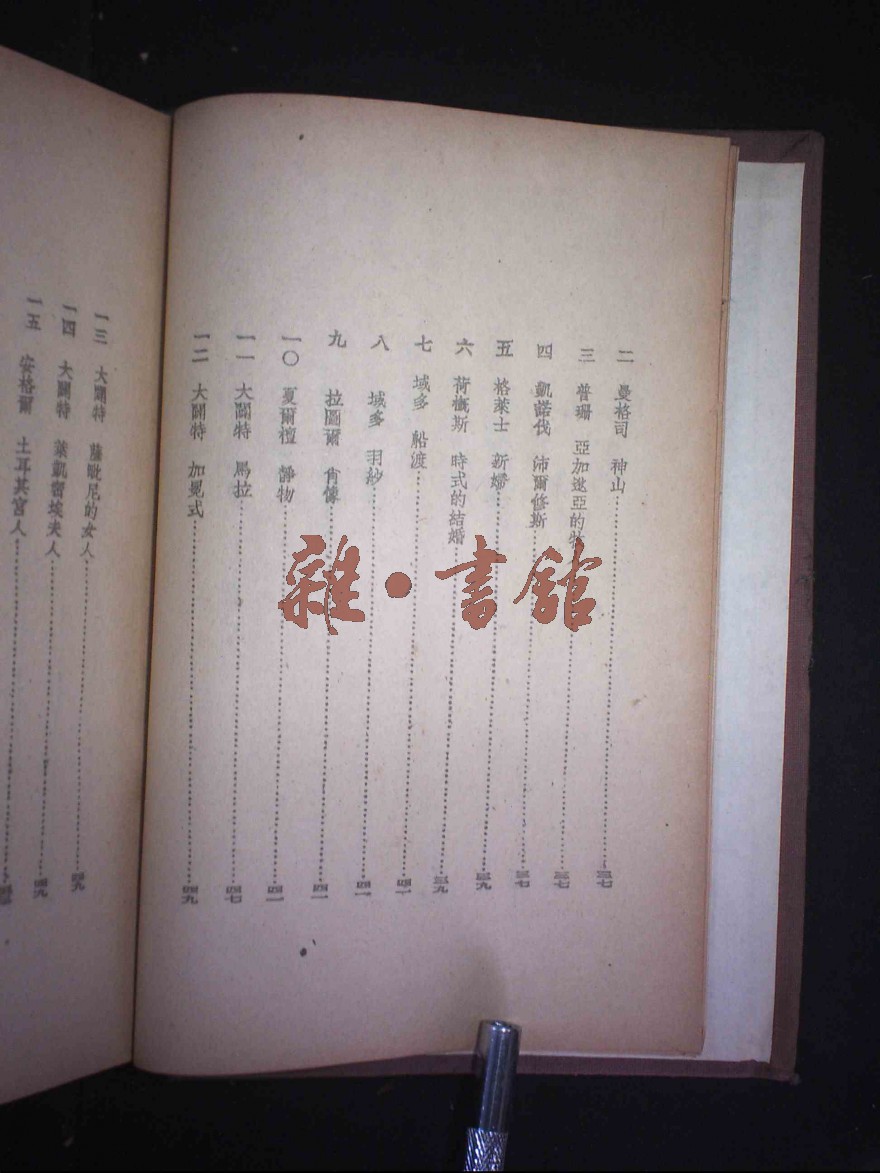 二 曼格司 神山……三七
三 普珊 亞加遂亞的牧……三七
四 凱諾伐 沛爾修斯……三七
五 格萊士 新婚……三九
六 荷槪斯 時式的結婚……三九
七 域多 船渡……四一
八 域多 羽紗……四一
九 拉圖爾 肖像……四一
一〇 夏爾檀 靜物……四一
一一 大闢特 馬拉……四七
一二 大闢特 加冕式……四九
一三 大闢特 薩毗尼的女人……四九
一四 大闢特 萊凱密埃夫人……四九
一五 安格爾 土耳其宮人……
雜·書館